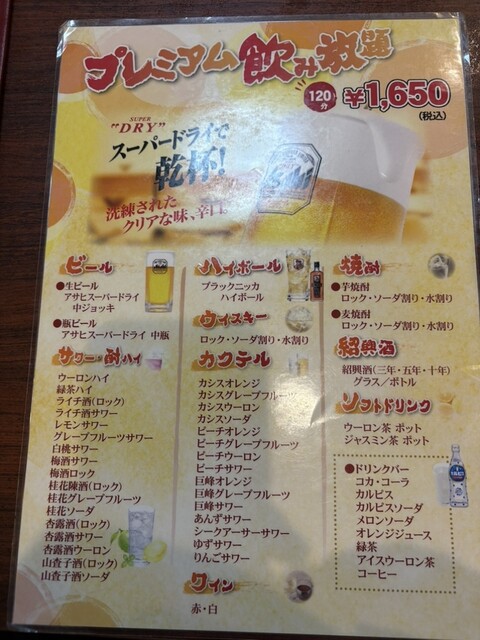 プレミアム飲み放題
120分 ¥1,650
(税込)
SUPER
"DRY"
スーパードライで
乾杯!
洗練された
クリアな味、辛口。
Asahi
ビール
●生ビール
アサヒスーパードライ
中ジョッキ
●瓶ビール
アサヒスーパードライ 中瓶
サワー・酎ハイ
ウーロンハイ
緑茶ハイ
ライチ酒(ロック)
ライチ酒サワー
レモンサワー
グレープフルーツサワー
白桃サワー
梅酒サワー
梅酒ロック
桂花陳酒(ロック)
桂花グレープフルーツ
桂花ソーダ
杏露酒(ロック)
杏露酒サワー
杏露酒ウーロン
山査子酒(ロック)
山査子酒ソーダ
ハイボール
ブラックニッカ
ハイボール
ウィスキー
ロック・ソーダ割り・水割り
カクテル
カシスオレンジ
カシスグレープフルーツ
カシスウーロン
カシスソーダ
ピーチオレンジ
ピーチグレープフルーツ
ピーチウーロン
ピーチサワー
巨峰オレンジ
巨峰グレープフルーツ
巨峰サワー
あんずサワー
シークアーサーサワー
ゆずサワー
りんごサワー
ワイン
赤・白
焼酎
●芋焼酎
ロック・ソーダ割り・水割り
●麦焼酎
ロック・ソーダ割り・水割り
紹興酒
紹興酒(三年・五年・十年)
グラス/ボトル
ソフトドリンク
ウーロン茶 ポット
ジャスミン茶 ポット
●ドリンクバー
コカ・コーラ
カルピス
カルピスソーダ
メロンソーダ
オレンジジュース
緑茶
アイスウーロン茶
コーヒー